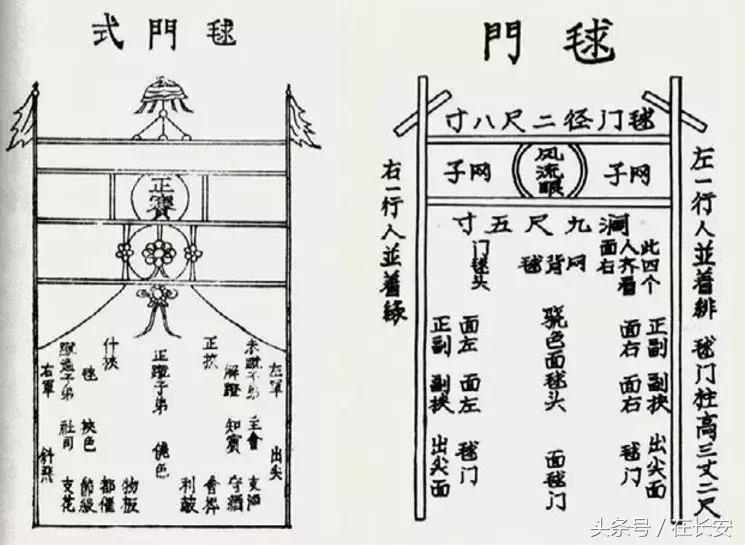 毬門式
正寶
左軍
出尖
主會
支酒
解蹬
知賓
守酒
正挾
利鼓
正蹴子弟
僥色
什挾
物板
都催
毬
挾色
節級
社司
支花
右軍
斜飛
毬門
毬门径二尺八寸
网子
风流眼
网子
濶九尺五寸
左一行人並着緋 毬门柱高三丈二尺
此四个
人齐看
面右
网背毬
门毬头
正副
副挟
出尖面
面右
面右
毬门
骁色面毬头
面毬门
面左
面左
毬门
正副
副挟
出尖面
右一行人並着緑
头条号 / 在长安